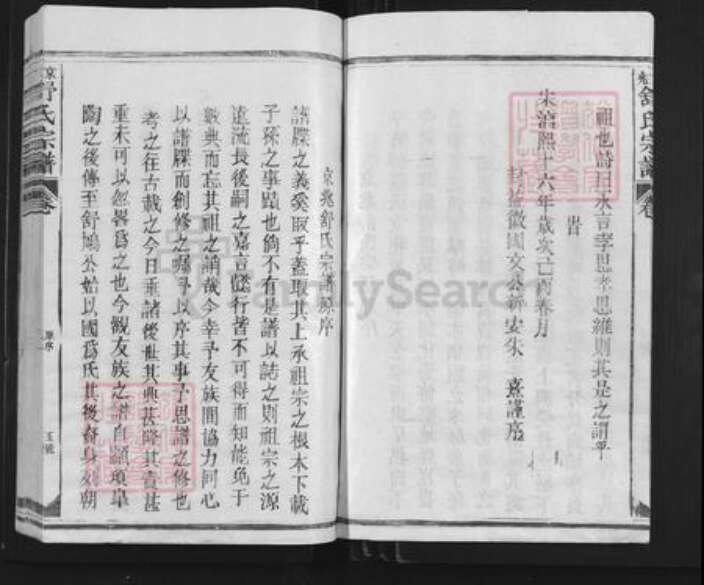 祖也詩曰永言孝思孝思維則其是之謂乎
旹
宋淳熙十六年歲次己酉春月
徽國文公新安朱 熹謹序
京兆舒氏宗譜原序
譜牒之義奚取乎蓋取其上承祖宗之根本下載
子孫之事蹟也倘不有是譜以誌之則祖宗之源
遠流長後嗣之嘉言懿行皆不可得而知能免于
數典而忘其祖之誚哉今幸予友族間協力同心
以譜牒而創修之囑予以序其事予思譜之修也
考之往古載之今日垂諸後世其典甚隆其責甚
重未可以忽畧爲之也今觀友族之譜自顓頊臯
陶之後傳至舒鳩公始以國爲氏其後奮身列朝
舒氏宗譜
卷
原序
玉號
舒氏宗譜
卷
FamilySearch